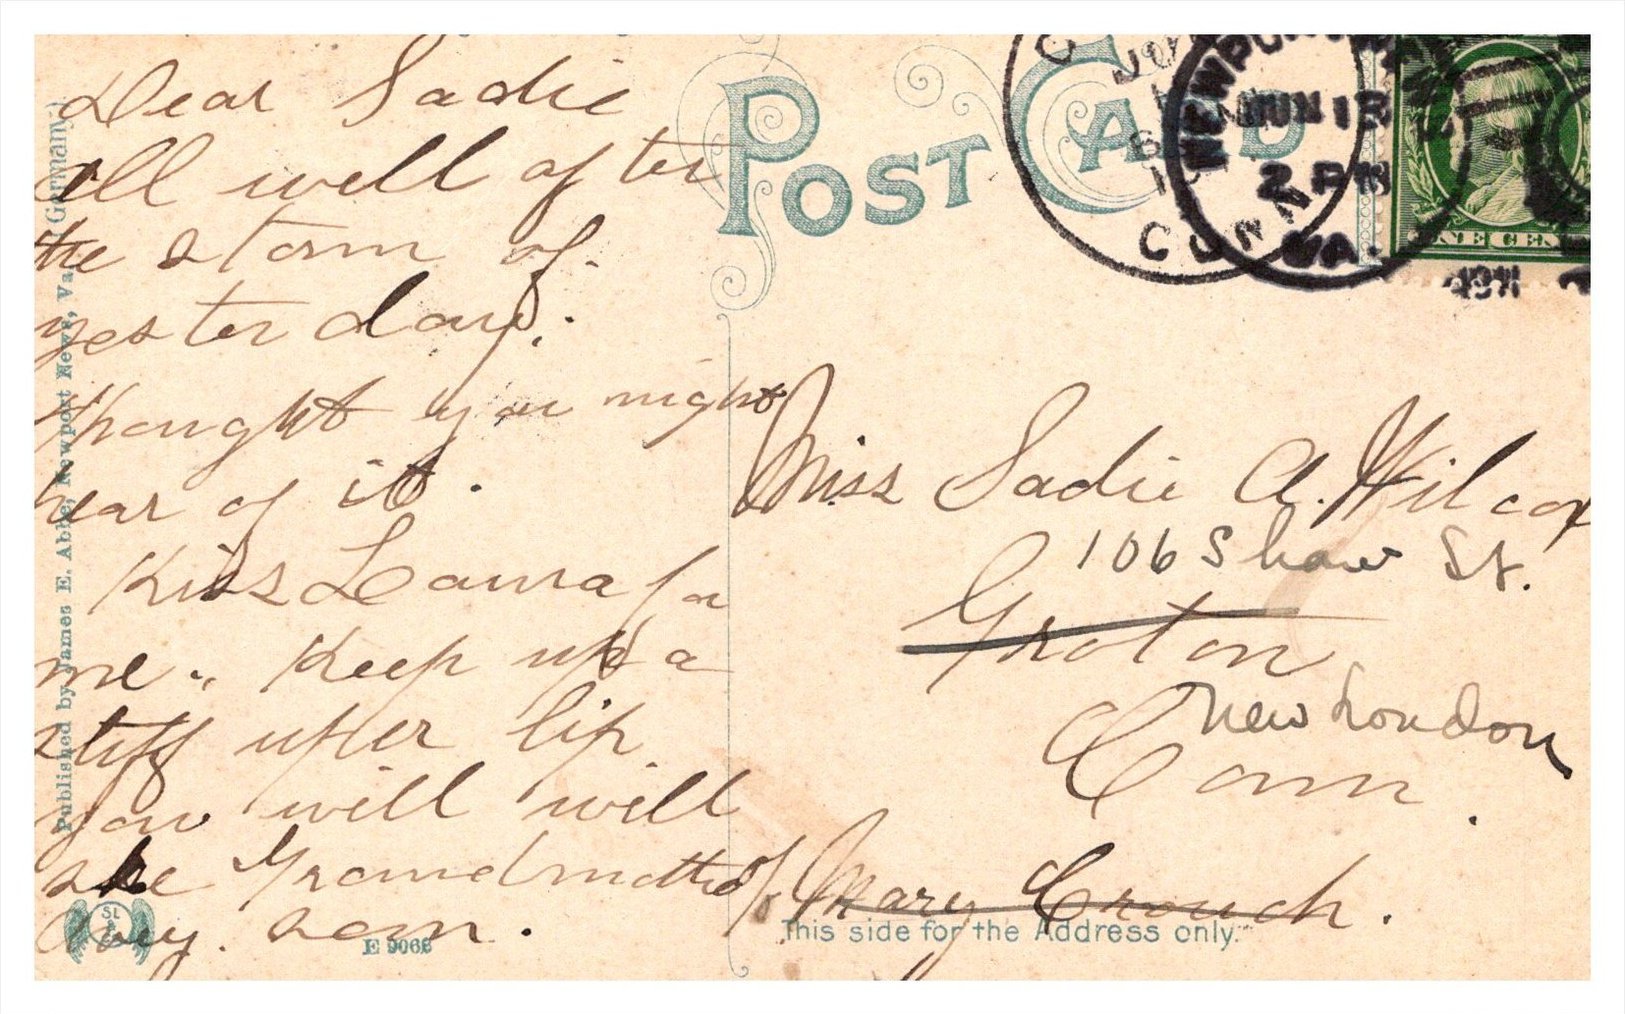 Dear Sadie
all well after
the storm of
yesterday.
thought you might
hear of it.
Kiss Laura for
me. Keep up a
stiff upper lip
you will will
see Grandmother
soon.
POST CARD
NEWPORT NEWS
JUN 13
2 PM
VA.
CONN
ONE CENT
Miss Sadie A. Wilcox
106 Shaw St.
Groton
New London
Conn.
Mary Crouch.
This side for the Address only.
Published by James E. Abbe, Newport News, Va. (Germany)
E 9066